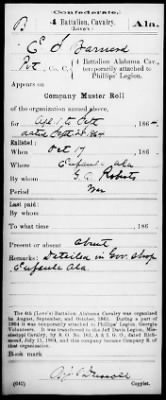 Confederate.
B 4 Battalion, Cavalry. Ala.
(Love's)
E S
Pvt, Co. C, 4 Battalion Alabama Cav., temporarily attached to Phillips' Legion.
Appears on
Company Muster Roll
of the organization named above,
for Sept & Oct, 186
dated Sept 28, 64
Enlisted:
When Oct 17, 186
Where Eufaula Ala
By G. A. Roberts
Period War
Last paid:
By whom
To what time , 186
Present or absent absent
Remarks: Detailed in Gov. shop
Eufaula Ala
The 4th (Love's) Battalion Alabama Cavalry was organized
in August, September and October, 1863. During a part of
1864 it was temporarily attached to Phillips' Legion, Georgia
Volunteers. It was transferred to the Jeff Davis Legion, Mis-
sissippi Cavalry, by S. O. No. 162, A. & I. G. O., dated Rich-
mond, July 11, 1864, and this company became Company K of
that organization.
Book mark:
(641) Copyist.